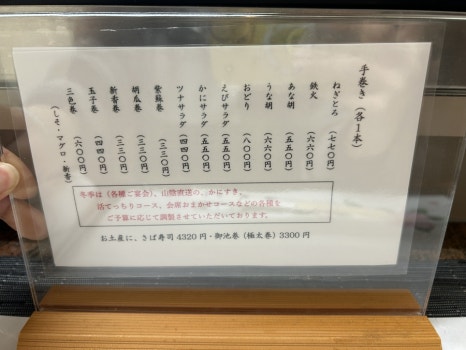 手巻き(各1本)
ねぎとろ (七七〇円)
鉄火 (六六〇円)
あな胡 (五五〇円)
うな胡 (六六〇円)
おどり (八〇〇円)
えびサラダ (五五〇円)
かにサラダ (五五〇円)
ツナサラダ (四四〇円)
紫蘇巻 (三三〇円)
胡瓜巻 (三三〇円)
新香巻 (三三〇円)
玉子巻 (四四〇円)
三色巻 (六〇〇円)
(しそ・マグロ・新香)
冬季は(各種ご宴会)、山陰直送の、かにすき、
活てっちりコース、会席おまかせコースなどの各種を
ご予算に応じて調製させていただいております。
お土産に、さば寿司4320円・御池巻(極太巻)3300円